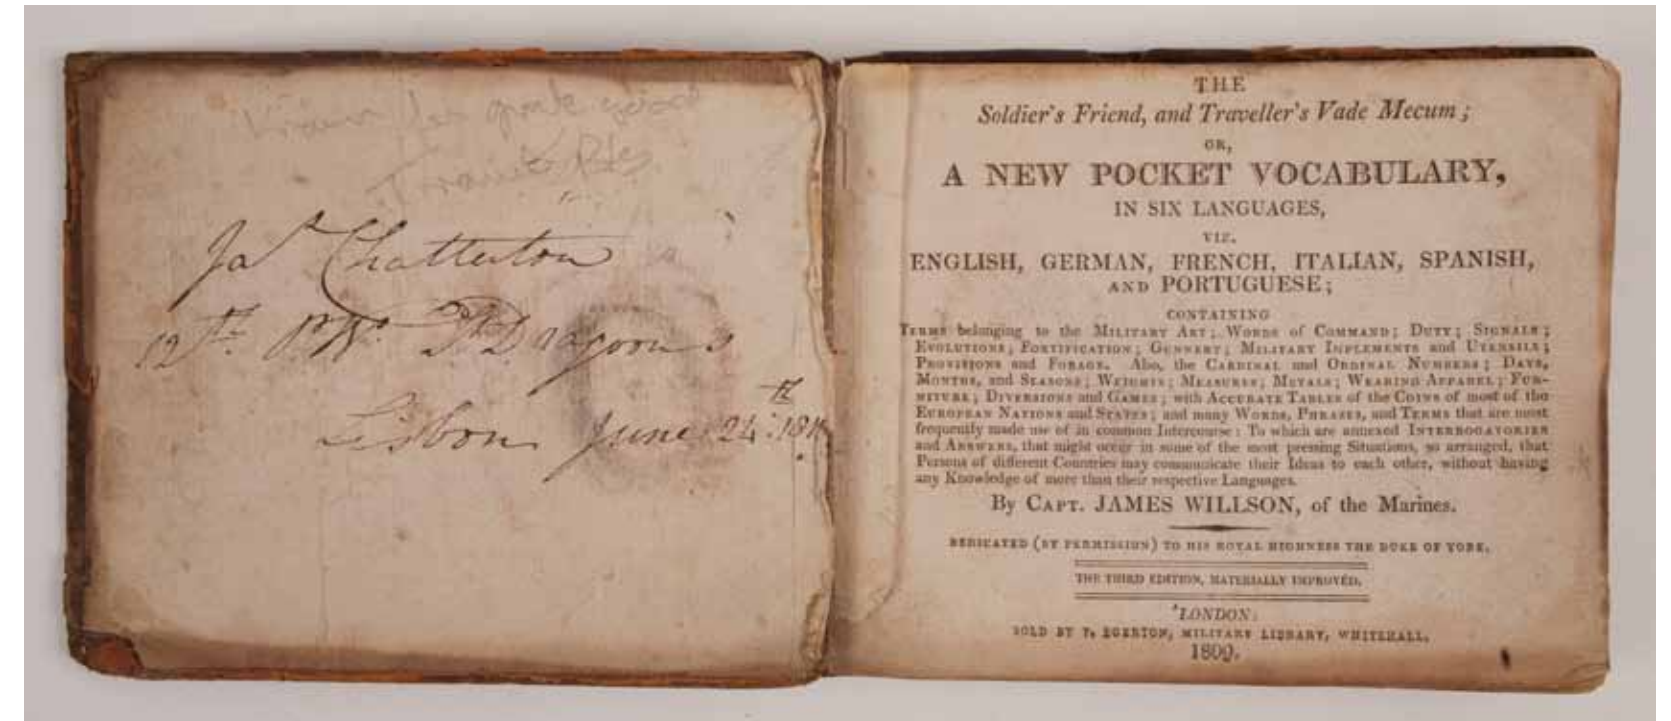 Jaˢ Chatterton
12th P.Ws. Lt Dragoons
Lisbon June 24th 181
THE
Soldier's Friend, and Traveller's Vade Mecum;
OR,
A NEW POCKET VOCABULARY,
IN SIX LANGUAGES,
VIZ.
ENGLISH, GERMAN, FRENCH, ITALIAN, SPANISH,
AND PORTUGUESE;
CONTAINING
TERMS belonging to the MILITARY ART; WORDS of COMMAND; DUTY; SIGNALS;
EVOLUTIONS; FORTIFICATION; GUNNERY; MILITARY IMPLEMENTS and UTENSILS;
PROVISIONS and FORAGE. Also, the CARDINAL and ORDINAL NUMBERS; DAYS,
MONTHS, and SEASONS; WEIGHTS; MEASURES; METALS; WEARING APPAREL; FUR-
NITURE; DIVERSIONS and GAMES; with ACCURATE TABLES of the COINS of most of the
EUROPEAN NATIONS and STATES; and many WORDS, PHRASES, and TERMS that are most
frequently made use of in common Intercourse: To which are annexed INTERROGATORIES
and ANSWERS, that might occur in some of the most pressing Situations, so arranged, that
Persons of different Countries may communicate their Ideas to each other, without having
any Knowledge of more than their respective Languages.
By CAPT. JAMES WILLSON, of the Marines.
DEDICATED (BY PERMISSION) TO HIS ROYAL HIGHNESS THE DUKE OF YORK.
THE THIRD EDITION, MATERIALLY IMPROVED.
LONDON:
SOLD BY T. EGERTON, MILITARY LIBRARY, WHITEHALL.
1809.